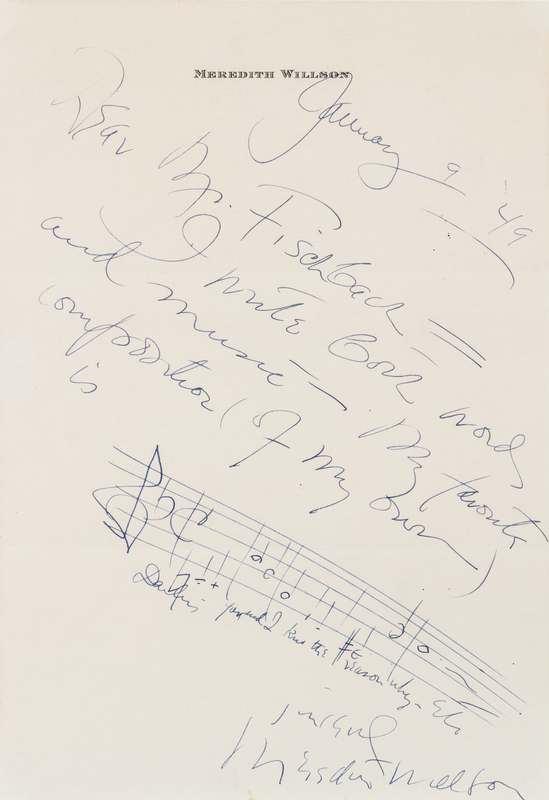 MEREDITH WILLSON
January 9 '49
Dear Mr. Fischbach —
I write both words
and music — My favorite
composition (of my own)
is
Darling you and I know the reason why - etc
Sincerely
Meredith Willson